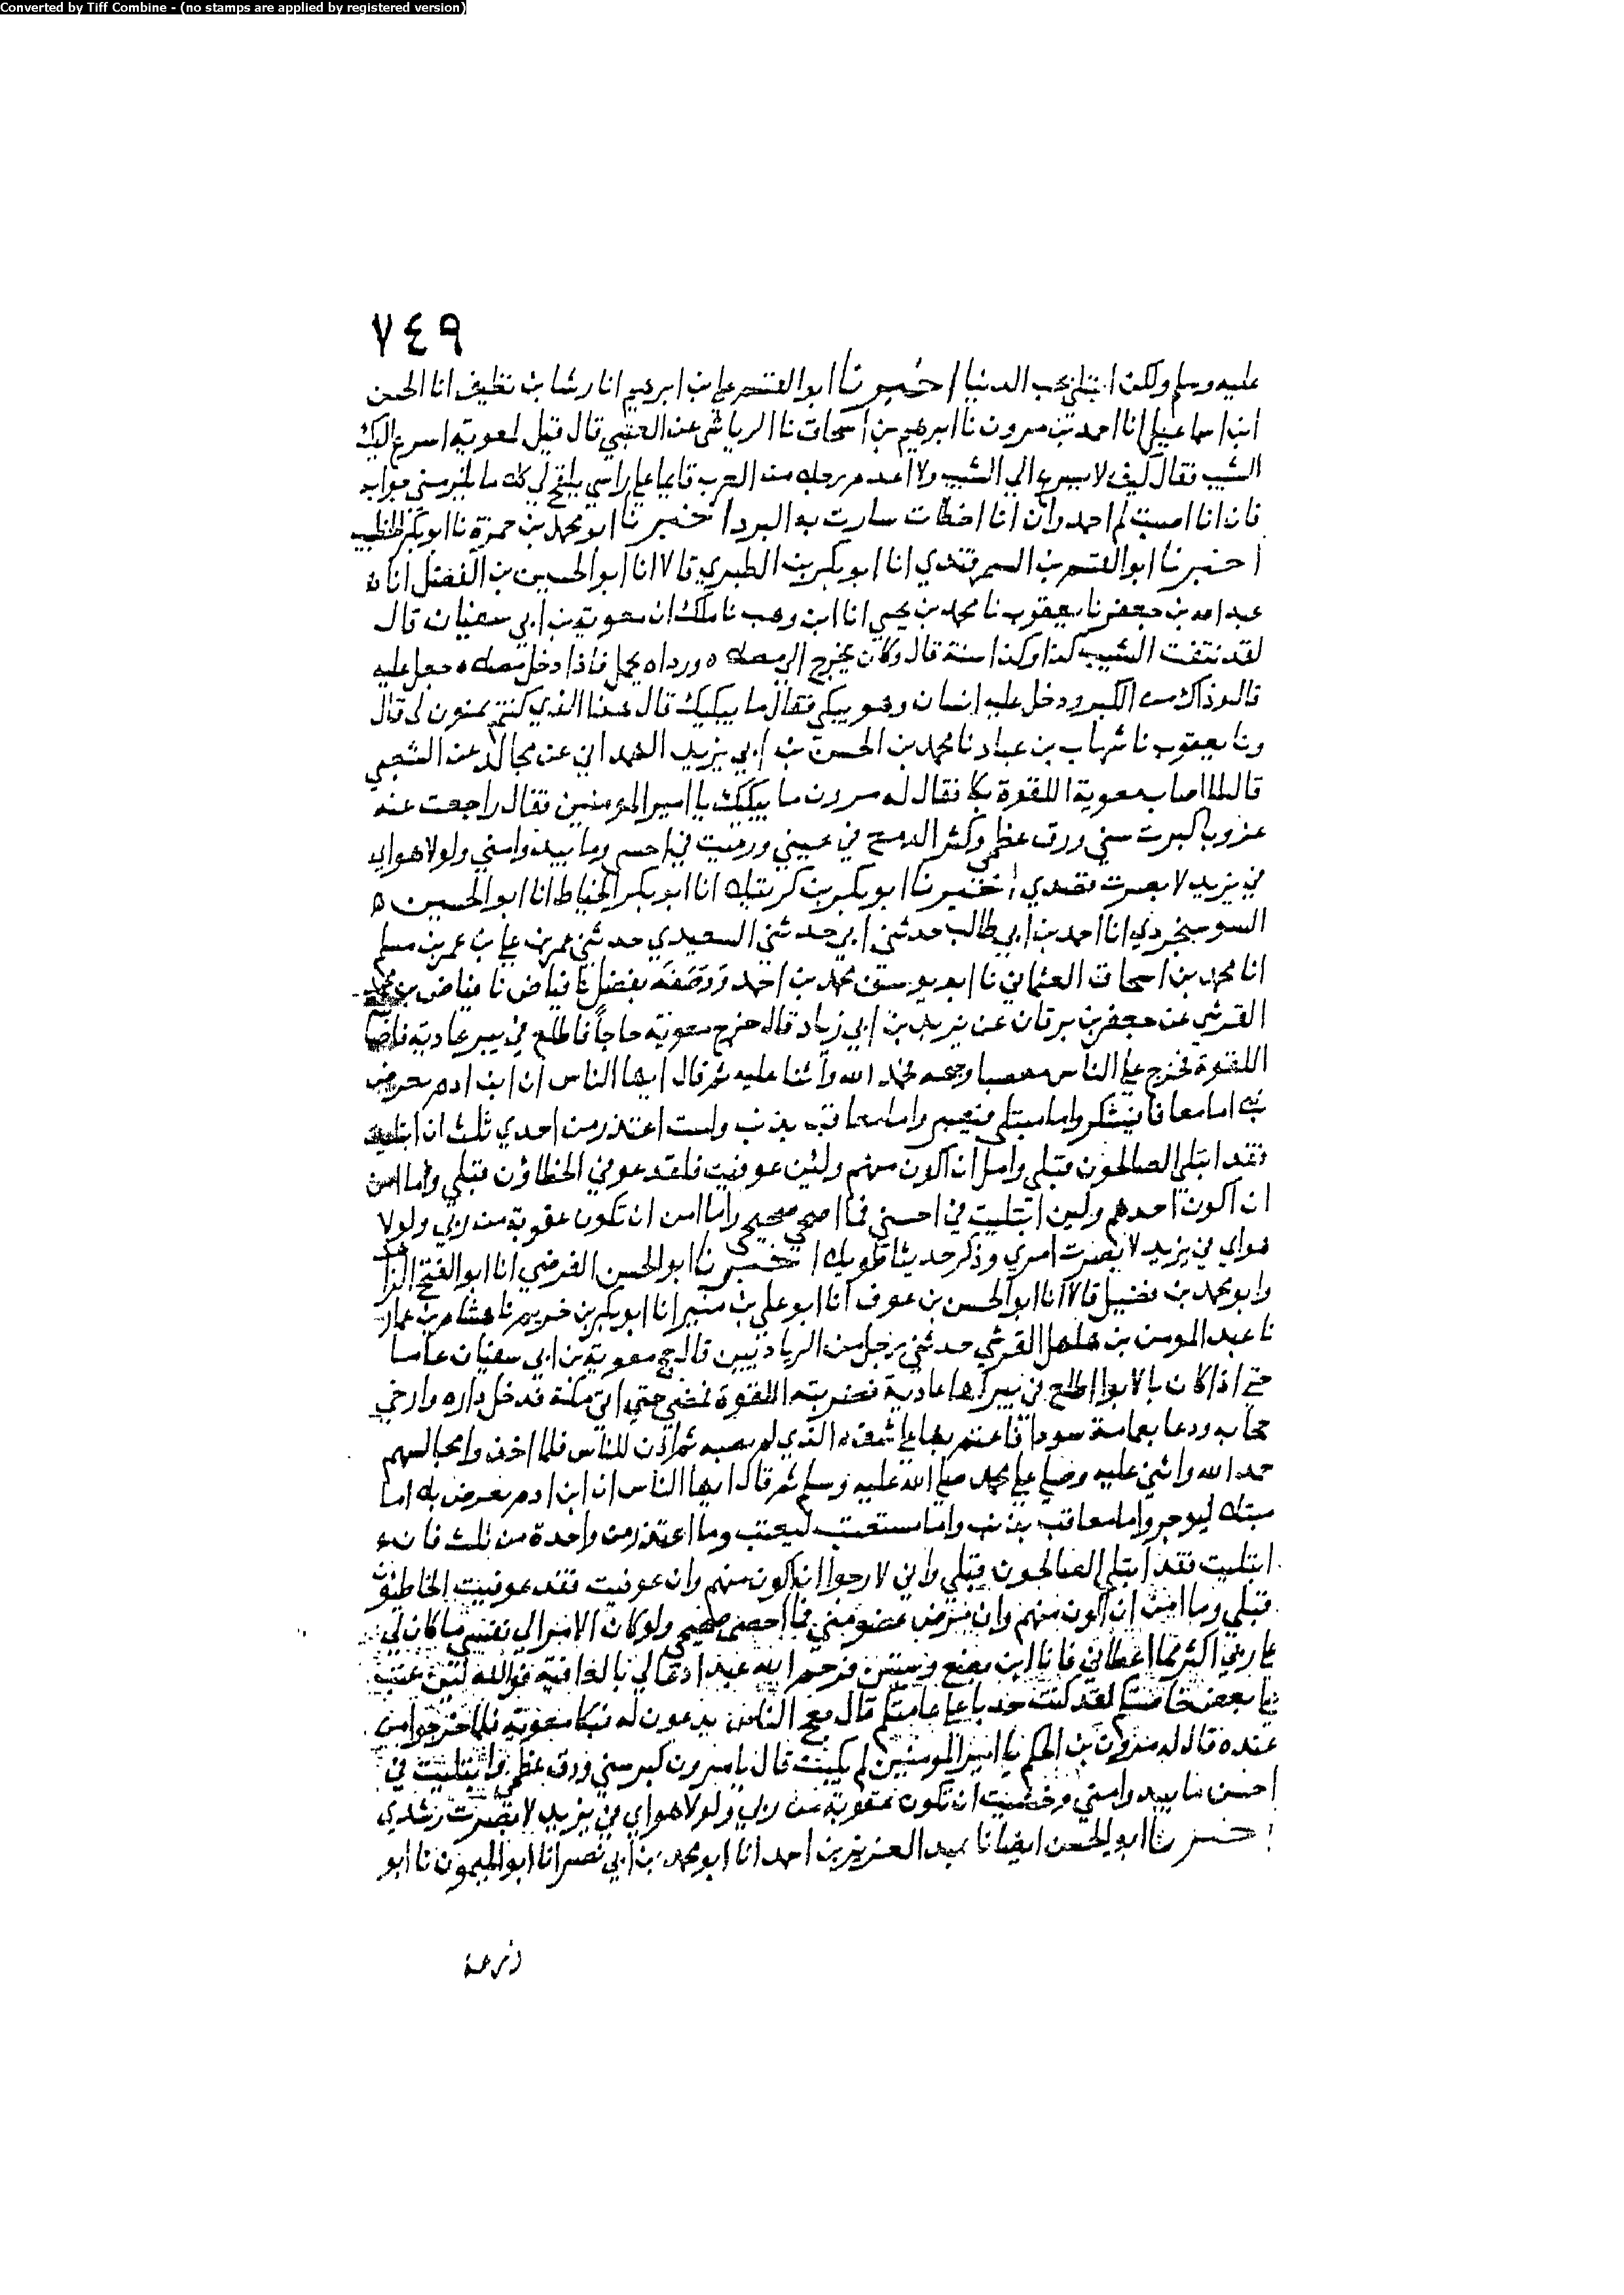 Converted by Tiff Combine - (no stamps are applied by registered version)
٧٤٩
عليه وسلم ولكن ابتلي بحب الدنيا اخبرنا ابو القسم علي بن ابرهيم انا رشا بن نظيف انا الحسن
ابن اسماعيل انا احمد بن مرون نا ابرهيم بن اسحاق نا الرياشي عن العتبي قال قيل لمعوية اسرع اليك
الشيب فقال كيف لا يسرع الي الشيب ولا اعدم رجلا من العرب قايما علي راسي يلقح لي كلاما يلزمني جوابه
فان انا اصبت لم احمد وان انا اخطات سارت به البرد اخبرنا ابو محمد بن حمزة نا ابو بكر الخطيب
اخبرنا ابو القسم بن السمرقندي انا ابو بكر بن الطبري قالا انا ابو الحسين بن الفضل انا
عبد الله بن جعفر نا يعقوب نا محمد بن يحيي انا ابن وهب نا ملك ان معوية بن ابي سفيان قال
لقد نتفت الشيب كذا وكذا سنة قال وكان يخرج الي مصلاه ورداه يحمل فاذا دخل مصلاه جعل عليه
قال وذاك من الكبر ودخل عليه انسان وهو يبكي فقال ما يبكيك قال هذا الذي كنتم تمنون لي قال
ونا يعقوب نا شهاب بن عباد نا محمد بن الحسن بن ابي يزيد الهمداني عن مجالد عن الشعبي
قال لما اصاب معوية اللقوة بكا فقال له مرون ما يبكيك يا امير المومنين فقال راجعت عنه
عزوبا كبرت سني ورق عظمي وكثر الدمع في عيني ورميت في احسن وما يبدوا مني ولولا هواي
في يزيد لابصرت قصدي اخبرنا ابو بكر بن كرتيلا انا ابو بكر الخياط انا ابو الحسين
السوسنجردي انا احمد بن ابي طالب حدثني ابي حدثني السعيدي حدثني عمر بن علي بن عمر بن مسلم
انا محمد بن اسحاق العثماني نا ابو يوسف محمد بن احمد ووصفه بفضل نا فياض نا فياض بن محمد
القرشي عن جعفر بن برقان عن يزيد بن ابي زياد قال خرج معوية حاجا فاطلع في بير عادية فاصابته
اللقوة فخرج علي الناس معصبا وجهه فحمد الله واثنا عليه ثم قال ايها الناس ان ابن ادم بعرض
بلا اما معافا فيشكر واما مبتلي فيصبر واما معاقب بذنب ولست اعتذر من احدي ثلث ان ابتليت
فقد ابتلي الصالحون قبلي وامل ان اكون منهم ولئن عوفيت فلقد عوفي الخطاؤن قبلي وما امن
ان اكون احدهم ولين ابتليت في احسني فما احصي صحيحي وما امن ان تكون عقوبة من ربي ولولا
هواي في يزيد لابصرت امري وذكر حديثا طويلا اخبرنا ابو الحسن الفرضي انا ابو الفتح الزاهد
وابو محمد بن فضيل قالا انا ابو الحسن بن عوف انا ابو علي بن منير انا ابو بكر بن خريم نا هشام بن عمار
نا عبد المومن بن مهلهل القرشي حدثني رجل من الرياديين قال حج معوية بن ابي سفيان عاما
حتي اذا كان بالابوا اطلع في بير لها عادية فضربته اللقوة فمضي حتي اتي مكة فدخل داره وارخي
حجابه ودعا بعمامة سودا فاعتم بها علي شقه الذي لم يصبه ثم اذن للناس فلما اخذوا مجالسهم
حمد الله واثني عليه وصلي علي محمد صلي الله عليه وسلم ثم قال ايها الناس ان ابن ادم بعرض بلا اما
مبتلا ليوجر واما معاقب بذنب واما مستعتب ليعتب وما اعتذر من واحدة من ثلث فان
ابتليت فقد ابتلي الصالحون قبلي واني لارجوا ان اكون منهم وان عوفيت فقد عوفيت الخاطئون
قبلي وما امنت ان اكون منهم وان مرض عضو مني فما احصي صحيحي ولو كان الامر الي نفسي ما كان لي
علي ربي اكثر مما اعطاني فانا ابن بضع وستين فرحم الله عبدا دعا لي بالعافية فوالله لئن عتب
علي بعض خاصتكم لقد كنت حدبا علي عامتكم قال فعج الناس يدعون له فبكا معوية فلما خرجوا من
عنده قال له مرون بن الحكم يا امير المومنين لم بكيت قال يا مرون كبر سني ورق عظمي وابتليت في
احسن ما يبدوا مني وخشيت ان تكون عقوبة من ربي ولولا هواي في يزيد لابصرت رشدي
اخبرنا ابو الحسن ايضا نا عبد العزيز بن احمد انا ابو محمد بن ابي نصر انا ابو الميمون نا ابو
زرعة